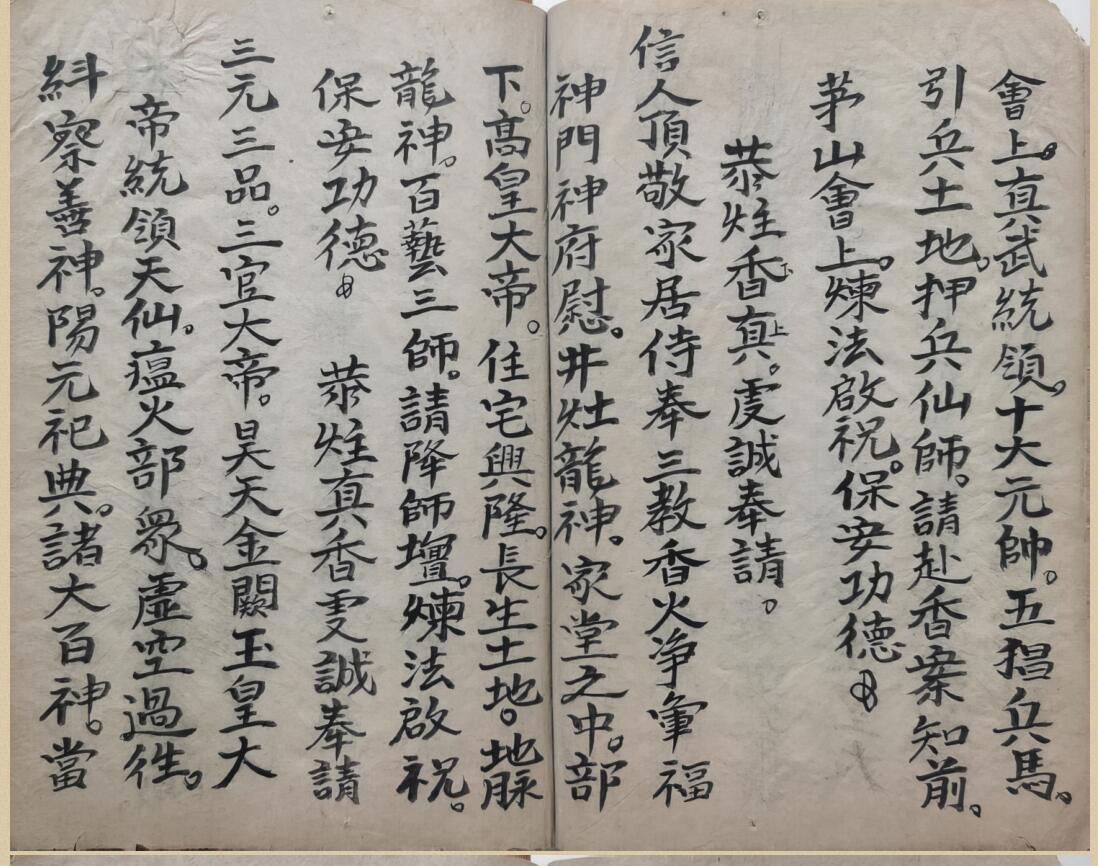 會上。真武統領。十大元帥。五猖兵馬。
引兵土地。押兵仙師。請赴香案知前。
茅山會上。煉法啟祝。保安功德。
恭炷香下真上。虔誠奉請。
信人頂敬家居侍奉三教香火净軍福
神門神府慰。井灶龍神。家堂之中。部
下。高皇大帝。住宅興隆。長生土地。地脉
龍神。百藝三師。請降師壇。煉法啟祝。
保安功德。 恭炷真香虔誠奉請
三元三品。三官大帝。昊天金闕玉皇大
帝統領天仙。瘟火部衆。虛空過徃。
糾察善神。陽元祀典。諸大百神。當